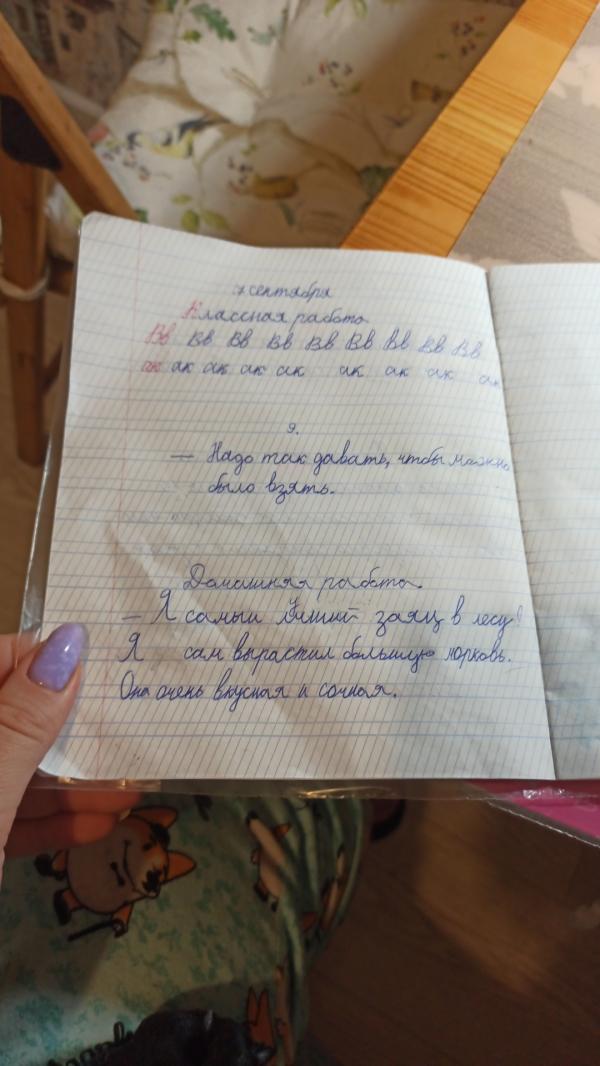 7 сентября
Классная работа
Вв Вв Вв Вв Вв Вв Вв Вв Вв
ак ак ак ак ак ак ак ак ак
9.
— Надо так давать, чтобы можно
было взять.
Домашняя работа.
— Я самый заяц в лесу!
Я сам вырастил большую морковь.
Она очень вкусная и сочная.